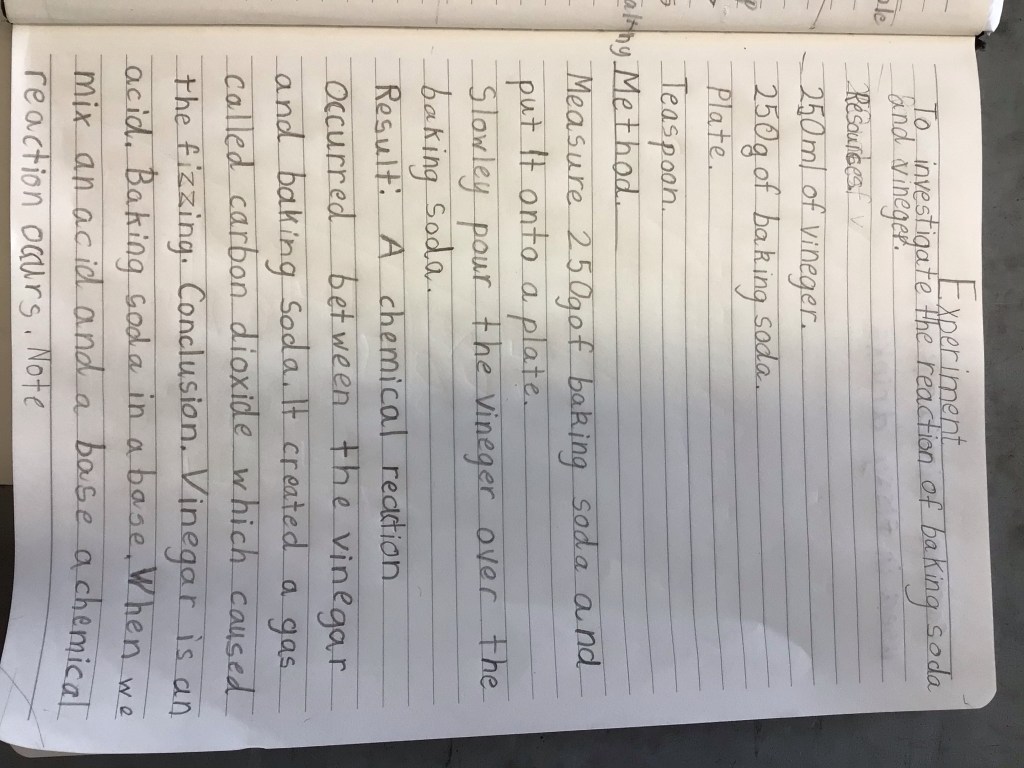 Experiment
To investigate the reaction of baking soda
and vineger.
Resourses
250ml of vineger.
250g of baking soda.
Plate.
Teaspoon.
Method.
Measure 250g of baking soda and
put It onto a plate.
Slowley pour the vineger over the
baking soda.
Result: A chemical reaction
Occurred between the vinegar
and baking soda. It created a gas
called carbon dioxide which caused
the fizzing. Conclusion. Vinegar is an
acid. Baking soda in a base. When we
mix an acid and a base a chemical
reaction ocurs. Note